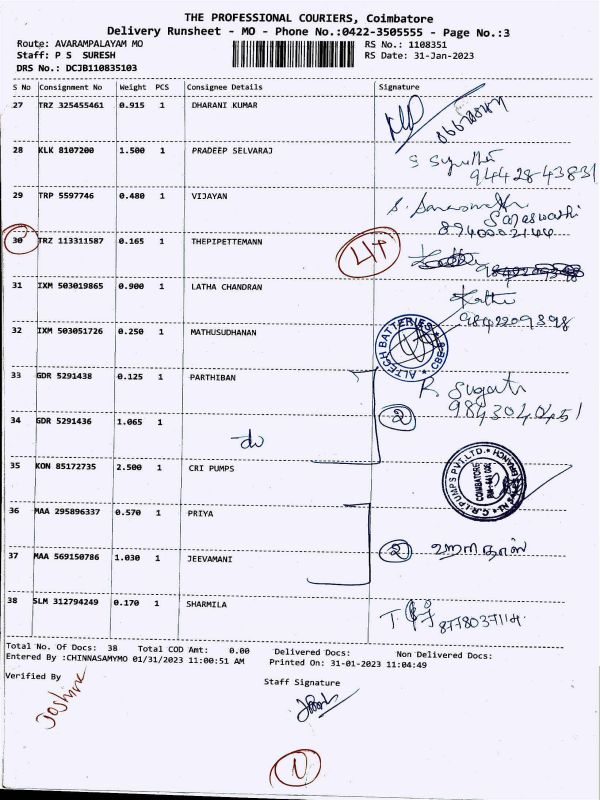 THE PROFESSIONAL COURIERS, Coimbatore
Delivery Runsheet - MO - Phone No.:0422-3505555 - Page No.:3
Route: AVARAMPALAYAM MO RS No.: 1108351
Staff: P S SURESH RS Date: 31-Jan-2023
DRS No.: DCJB110835103
S No Consignment No Weight PCS Consignee Details Signature
27 TRZ 325455461 0.915 1 DHARANI KUMAR
28 KLK 8107200 1.500 1 PRADEEP SELVARAJ
9442843831
29 TRP 5597746 0.480 1 VIJAYAN
Saraswathi
8940002144
30 TRZ 113311587 0.165 1 THEPIPETTEMANN
31 IXM 503019865 0.900 1 LATHA CHANDRAN
9842209398
32 IXM 503051726 0.250 1 MATHUSUDHANAN
ALTECH BATTERIES CBE
33 GDR 5291438 0.125 1 PARTHIBAN
R Sugati
9843040451
34 GDR 5291436 1.065 1 do 2
35 KON 85172735 2.500 1 CRI PUMPS
C.R.I PUMPS PVT.LTD.
COIMBATORE
36 MAA 295896337 0.570 1 PRIYA
37 MAA 569150786 1.030 1 JEEVAMANI 2
38 SLM 312794249 0.170 1 SHARMILA
Total No. Of Docs: 38 Total COD Amt: 0.00 Delivered Docs: Non Delivered Docs:
Entered By :CHINNASAMYMO 01/31/2023 11:00:51 AM Printed On: 31-01-2023 11:04:49
Verified By Staff Signature
Joshina
N